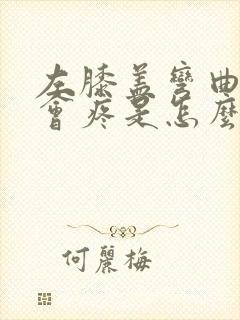 左膝盖彎曲
會疼是怎麼
何麗梅